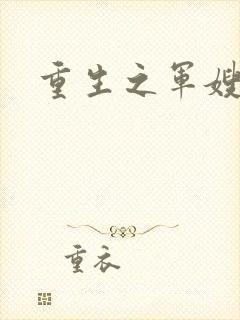 重生之军嫂
重衣